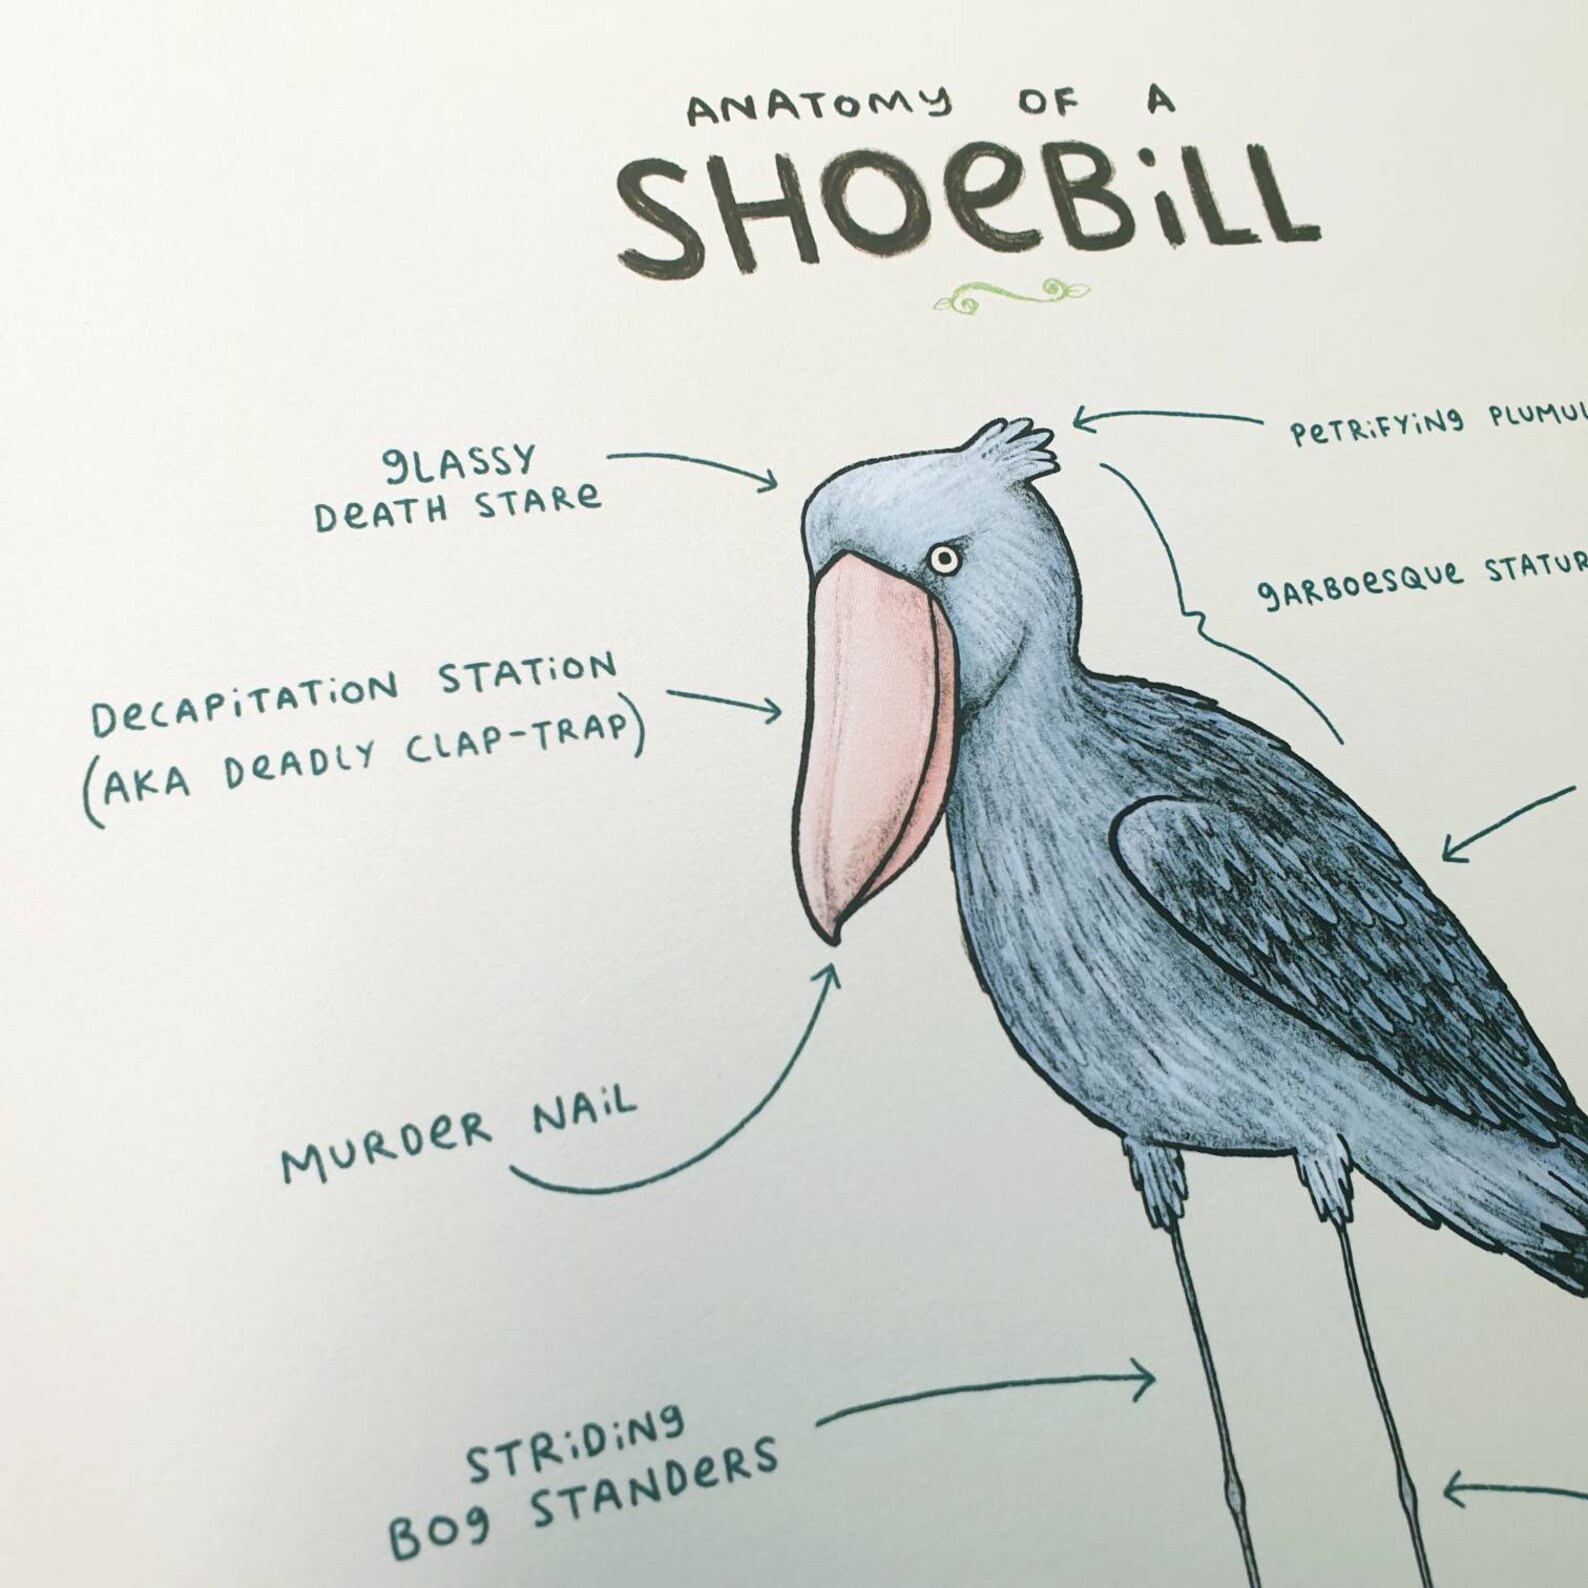 ANATOMY OF A
SHOEBILL
GLASSY
DEATH STARE
PETRIFYING
GARBOESQUE
DECAPITATION STATION
(AKA DEADLY CLAP-TRAP)
MURDER NAIL
STRIDING
BOG STANDERS